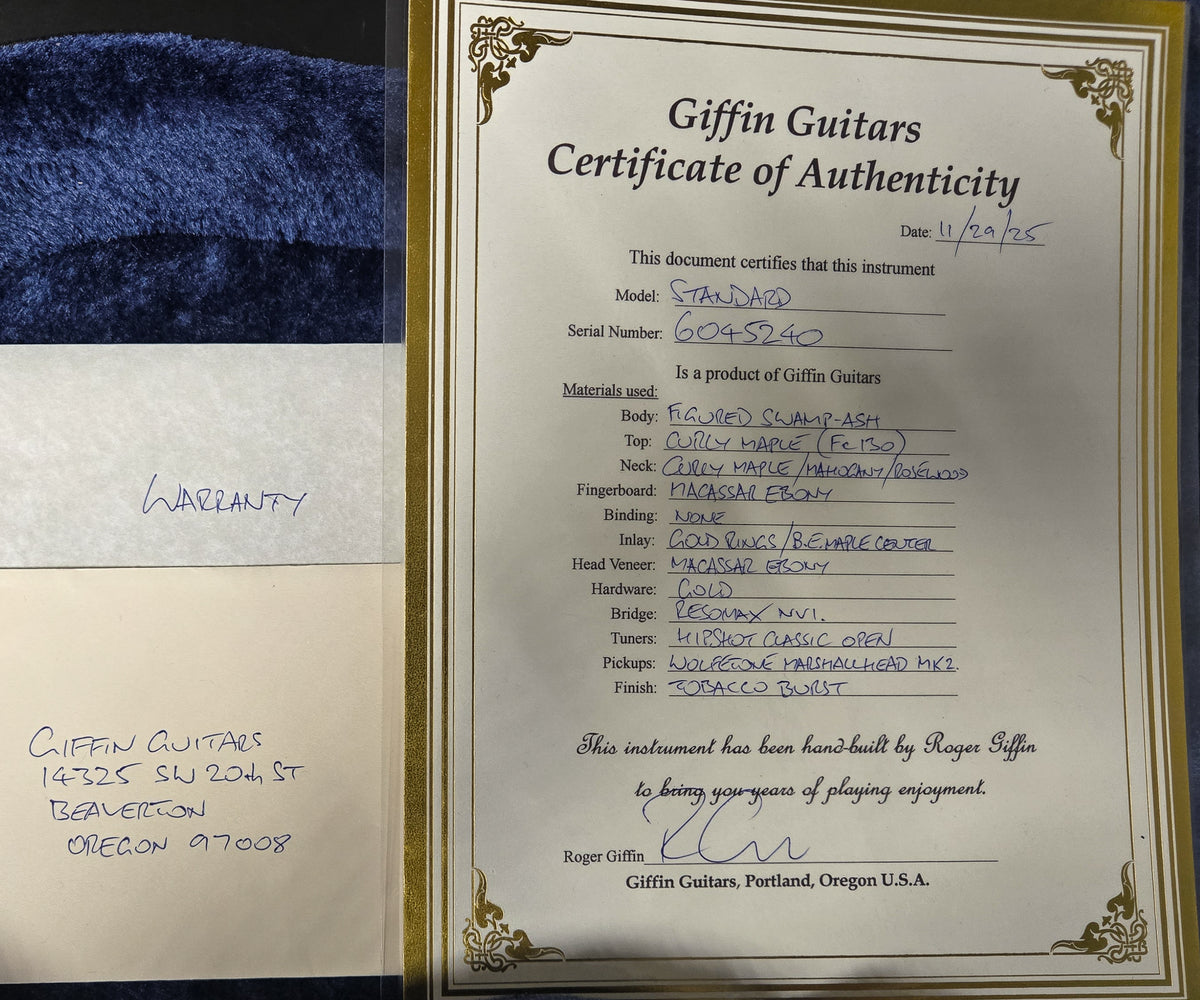 WARRANTY
GIFFIN GUITARS
14325 SW 20th ST
BEAVERTON
OREGON 97008
Giffin Guitars
Certificate of Authenticity
Date: 11/29/25
This document certifies that this instrument
Model: STANDARD
Serial Number: 6045240
Is a product of Giffin Guitars
Materials used:
Body: FIGURED SWAMP-ASH
Top: CURLY MAPLE (Fc130)
Neck: CURLY MAPLE/MAHOGANY/ROSEWOOD
Fingerboard: MACASSAR EBONY
Binding: NONE
Inlay: GOLD RINGS/B.E.MAPLE CENTER
Head Veneer: MACASSAR EBONY
Hardware: GOLD
Bridge: RESOMAX NV1.
Tuners: HIPSHOT CLASSIC OPEN
Pickups: WOLFETONE MARSHALLHEAD MK2.
Finish: TOBACCO BURST
This instrument has been hand-built by Roger Giffin
to bring you years of playing enjoyment.
Roger Giffin
Giffin Guitars, Portland, Oregon U.S.A.